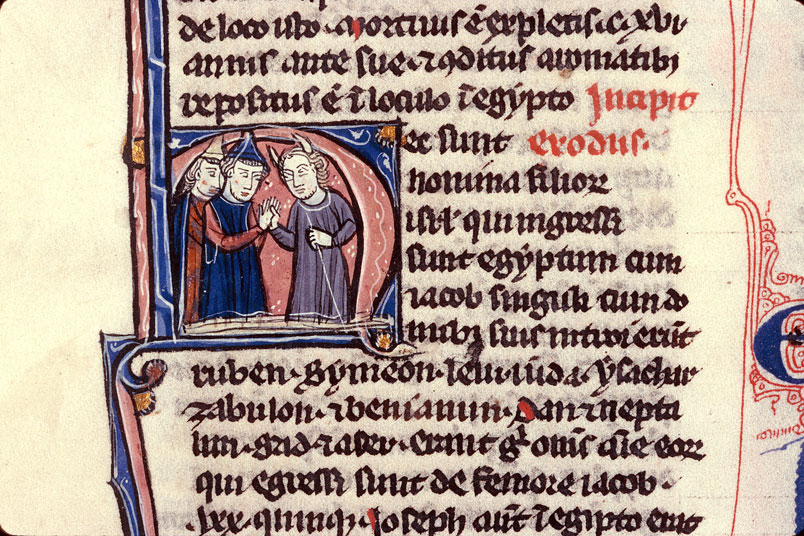 de loco isto. Mortuus ē expletis. c. x. vi
annis uite sue. ⁊ ꝯditus aromatibꝫ
repositus ē ī loculo ī egypto Incipit
ec sunt exodus.
nomina filioꝝ
isrl̄ qui ingressi
sunt egyptum cum
iacob singuli cum do
mibꝫ suis introierūt
ruben. Symeon. leui. iuda. ysachar
zabulon. ⁊ beniamin. Dan ⁊ nepta
lim. gad ⁊ aser. erant gͦ om̄s aīe eoꝝ
qui egressi sunt de femore iacob.
.lxx. quinqꝫ. Joseph aut̄ ī egipto erat